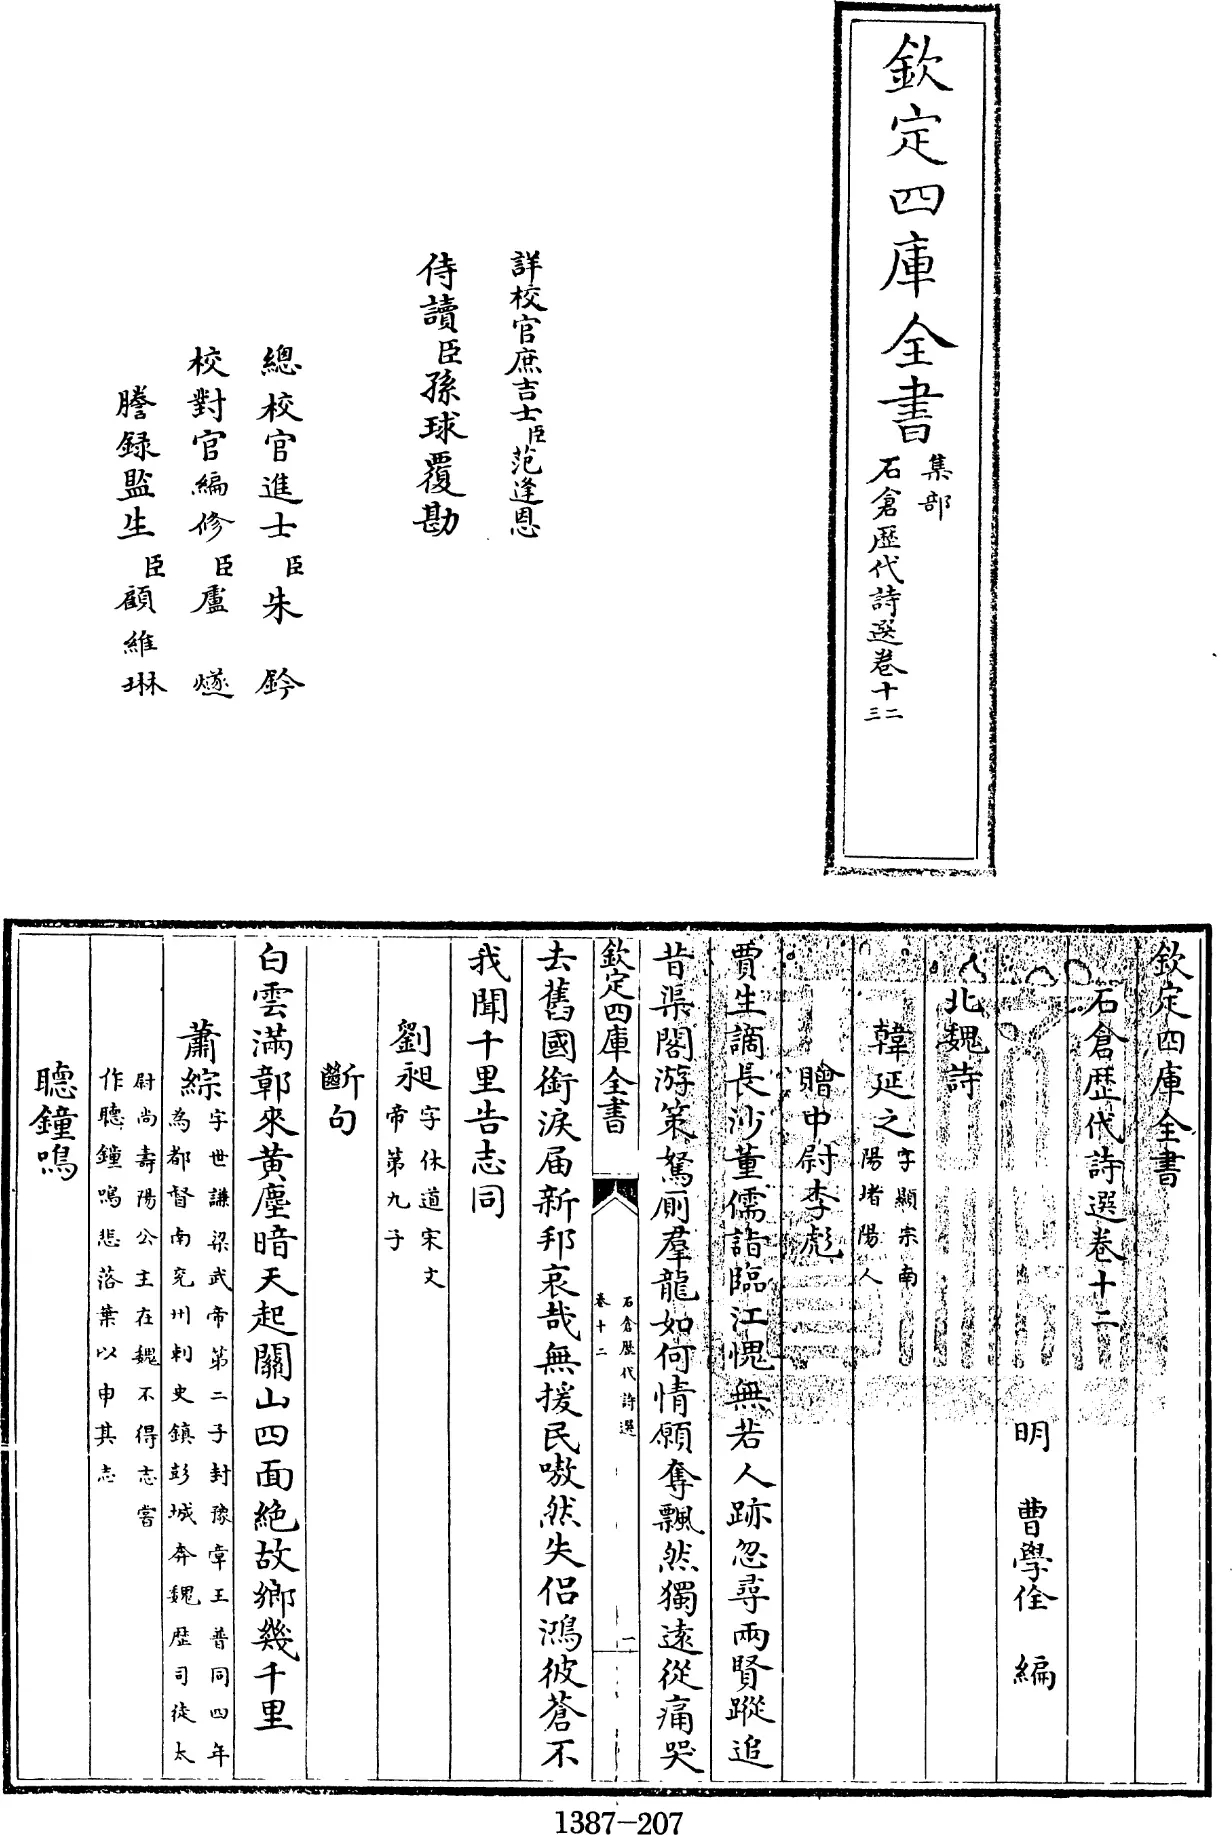 欽定四庫全書
集部
石倉歷代詩選卷十二三
詳校官庶吉士臣范逢恩
侍讀臣孫球覆勘
總校官進士臣朱鈐
校對官編修臣盧燧
謄録監生臣顧維琳
欽定四庫全書
石倉歷代詩選卷十二
明 曹學佺 編
北魏詩
韓延之字顯宗南
陽堵陽人
贈中尉李彪
賈生謫長沙董儒詣臨江愧無若人跡忽尋兩賢蹤追
昔渠閣游策駑厠羣龍如何情願奪飄然獨遠從痛哭
欽定四庫全書
石倉歷代詩選
卷十二
一
去舊國銜淚届新邦哀哉無援民嗷然失侣鴻彼蒼不
我聞千里告志同
劉昶字休道宋文
帝第九子
斷句
白雲滿鄣來黄塵暗天起關山四面絶故鄉幾千里
蕭綜字世謙梁武帝第二子封豫章王普同四年
為都督南兖州刺史鎮彭城奔魏歴司徒太
尉尚壽陽公主在魏不得志嘗
作聽鐘鳴悲落葉以申其志
聽鐘鳴
1387-207